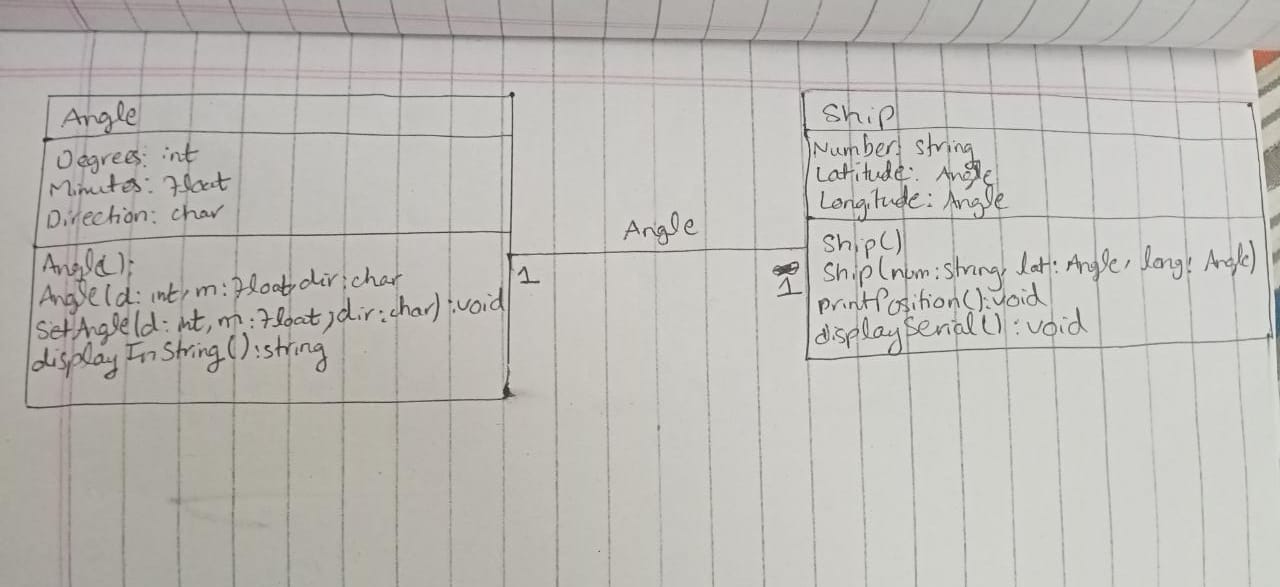 Angle
Degrees: int
Minutes: float
Direction: char
Angle();
Angle(d: int, m: float, dir: char
SetAngle(d: int, m: float, dir: char): void
displayInString(): string
Angle
1
1
Ship
Number: string
Latitude: Angle
Longitude: Angle
Ship()
Ship(num: string, lat: Angle, long: Angle)
printPosition(): void
displaySerial(): void